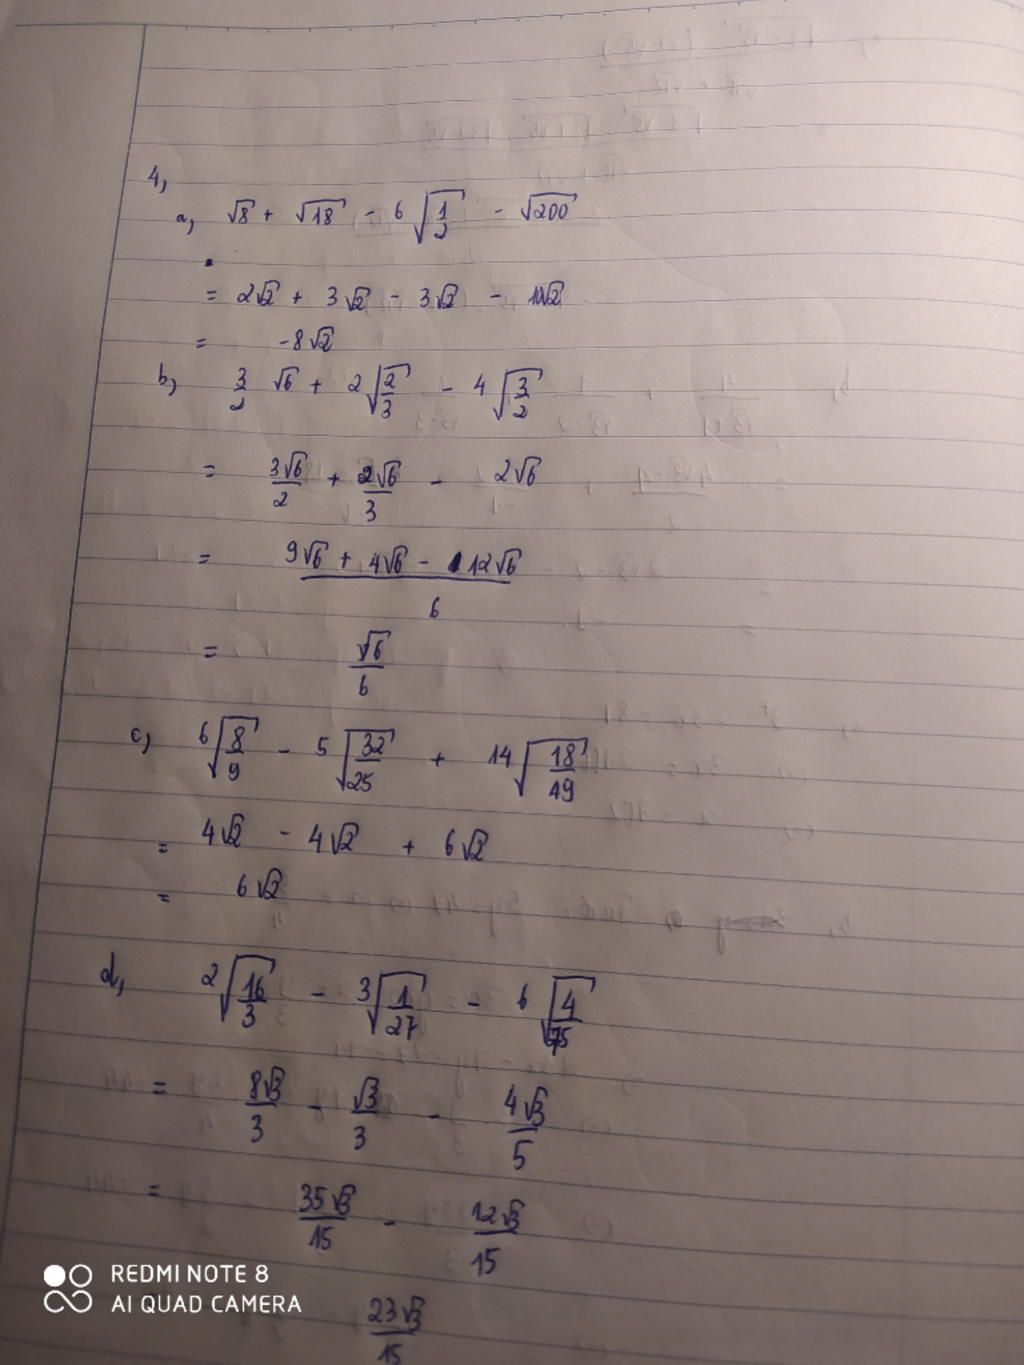 4,
a, √8 + √18 - 6 √(1/2) - √200
= 2√2 + 3√2 - 3√2 - 10√2
= -8√2
b, 3/2 √6 + 2√(2/3) - 4√(3/2)
= 3√6/2 + 2√6/3 - 2√6
= (9√6 + 4√6 - 12√6)/6
= √6/6
c, 6√(8/9) - 5√(32/25) + 14√(18/49)
= 4√2 - 4√2 + 6√2
= 6√2
d, 2√(16/3) - 3√(1/27) - 6√(4/75)
= 8√3/3 - √3/3 - 4√3/5
= 35√3/15 - 12√3/15
23√3/15
REDMI NOTE 8
AI QUAD CAMERA